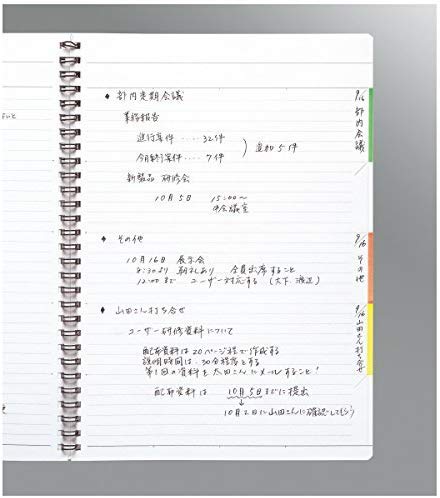 ◆ 部内定期会議
業務報告
進行案件 ‥‥ 32件
今月終了案件 ‥‥ 7件
) 追加 5件
新製品 研修会
10月5日 15:00〜
中会議室
◆ その他
10月16日 展示会
8:30より 朝礼あり 全員出席すること
12:00まで ユーザー対応する (大下、渡辺)
◆ 山田さん打ち合せ
ユーザー研修資料について
配布資料は 20ページ程で作成する
説明時間は、30分程度とする
第1回の資料を太田さんにメールすること!
配布資料は 10月5日までに提出
↓
10月2日に山田さんに確認してもらう
9/16 部内会議
9/16 その他
9/16 山田さん打ち合せ